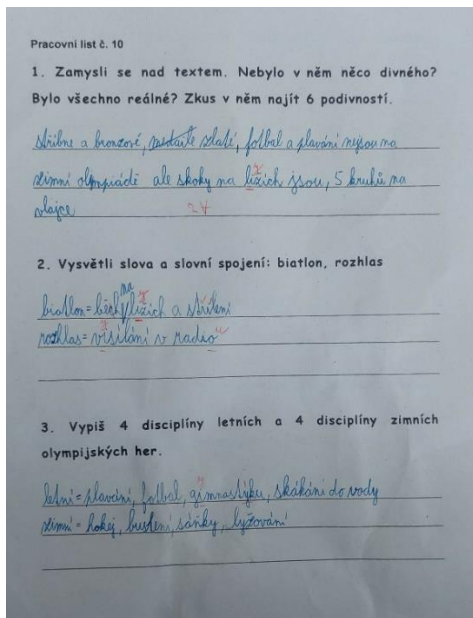 Pracovní list č. 10
1. Zamysli se nad textem. Nebylo v něm něco divného?
Bylo všechno reálné? Zkus v něm najít 6 podivností.
stříbrne a bronzové, zlaté, fotbal a plavání nejsou na
zimní olympiádě ale skoky na lizich jsou, 5 kruhů na
vlajce
2. Vysvětli slova a slovní spojení: biatlon, rozhlas
biatlon = běh na lizich a střílení
rozhlas = visílání v radio
3. Vypiš 4 disciplíny letních a 4 disciplíny zimních
olympijských her.
letní = plavání, fotbal, gimnastyku, skákání do vody
zimní = hokej, sáňky, lyžování